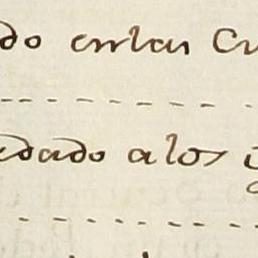 do enlas Cu
edado alos